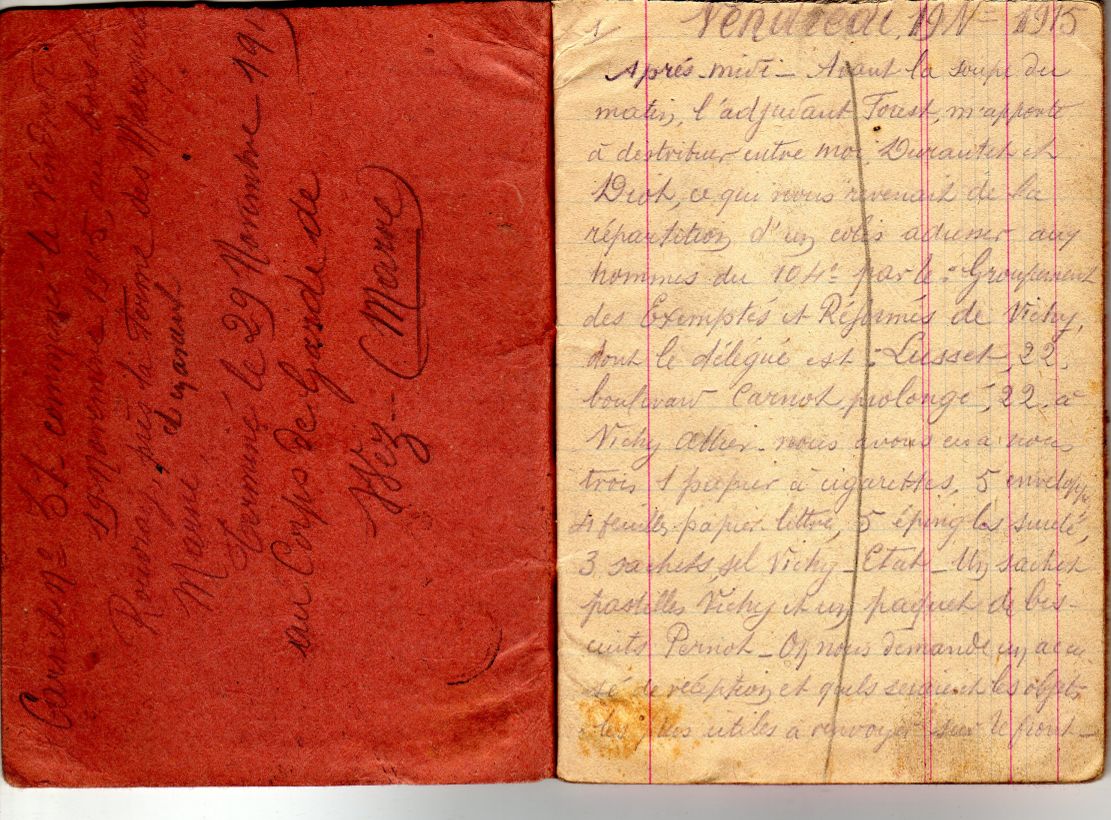 Carnet n° 31 commencé le vendredi
19 Novembre 1915 au bois de
près la Ferme des Marquises
Marne
Terminé le 29 Novembre 191
au Corps de Garde de
Wez -- (Marne)
1
Vendredi 19 Nbre 1915
Après-midi - Avant la soupe du
matin, l'adjudant Forest, m'apporte
à destribuer entre moi, Durantet et
Diot, ce qui nous revenait de la
répartition d'un colis adresser aux
hommes du 104e par le : Groupement
des Exemptés et Réformés de Vichy,
dont le délégué est : Lusset, 22,
boulevard Carnot prolongé, 22, à
Vichy Allier - nous avons eu à nous
trois 1 papier à cigarettes, 5 enveloppes
4 feuilles papier lettre, 5 épingles sureté,
3 sachets sel Vichy - Etat - Un sachet
pastilles Vichy et un paquet de bis-
cuits Pernot - On nous demande un accu
sé de réception et quels seraient les objets
les plus utiles à renvoyer sur le front -